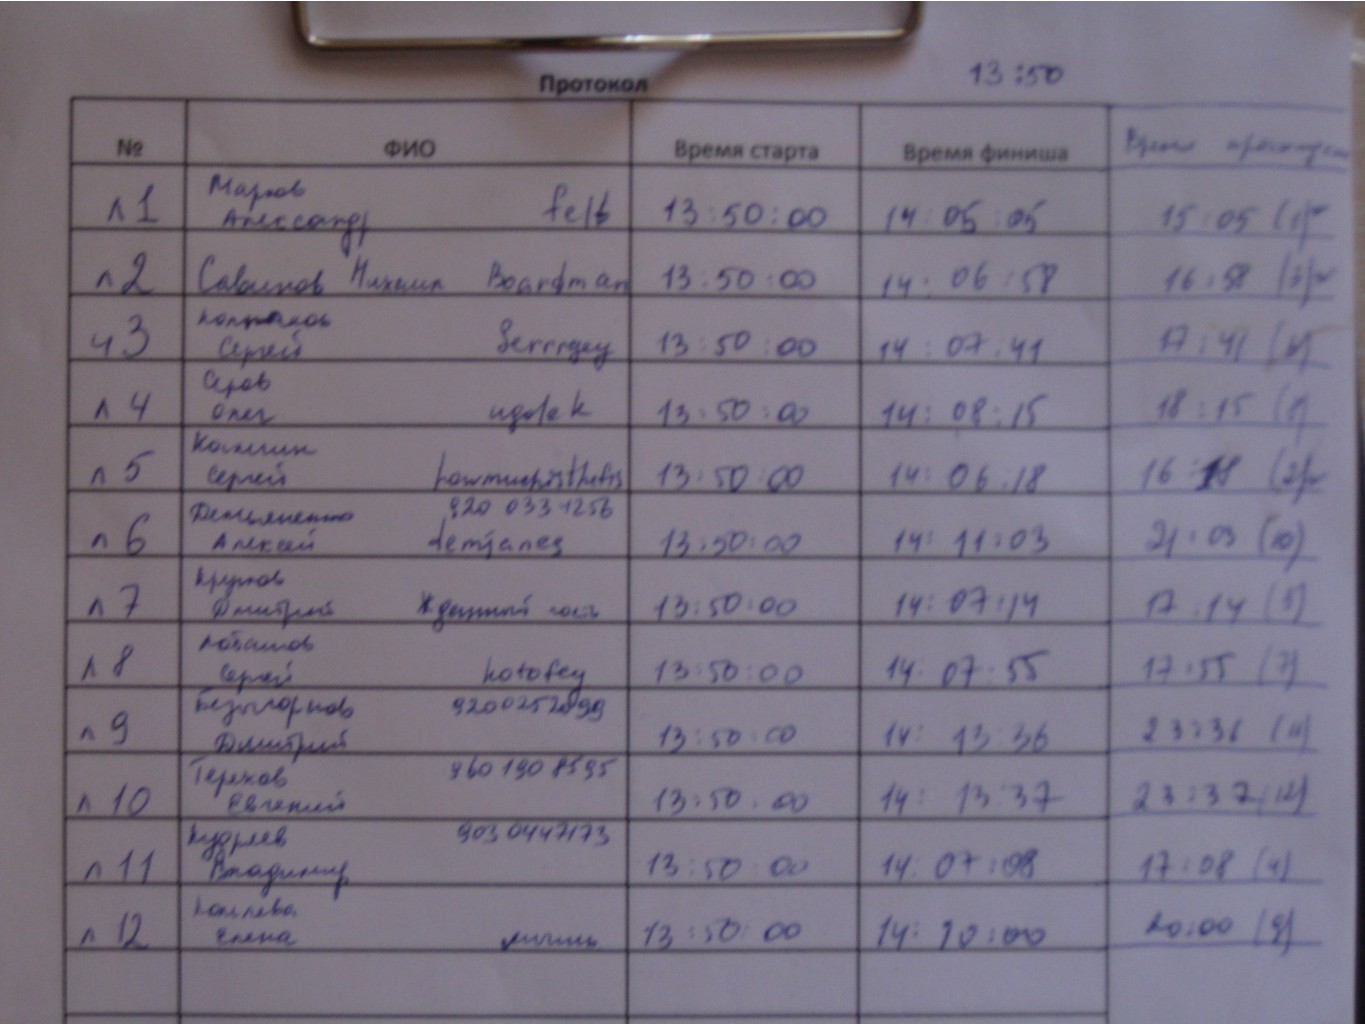 13:50
Протокол
№ ФИО Время старта Время финиша Время
л1 Марков Александр felb 13:50:00 14:05:05 15:05 (1)
л2 Михаил Boardman 13:50:00 14:06:58 16:58 (3)
ч3 Колпаков Сергей Serrrgey 13:50:00 14:07:41 17:41 (6)
л4 Серов Олег ugolek 13:50:00 14:08:15 18:15
л5 Сергей howmuchisthefis 13:50:00 14:06:18 16:18 (2)
л6 Демьяненко Алексей 920 033 1256 demjaneg 13:50:00 14:11:03 21:03 (10)
л7 Дмитрий Жданный гость 13:50:00 14:07:14 17:14 (5)
л8 Лобашов Сергей kotofey 13:50:00 14:07:55 17:55 (7)
л9 Безыгорнов Дмитрий 13:50:00 14:13:36 23:36 (11)
л10 Терехов Евгений 960 190 8595 13:50:00 14:13:37 23:37 (12)
л11 Кудряев Владимир 903 0447173 13:50:00 14:07:08 17:08 (4)
л12 Елена 13:50:00 14:10:00 20:00 (9)